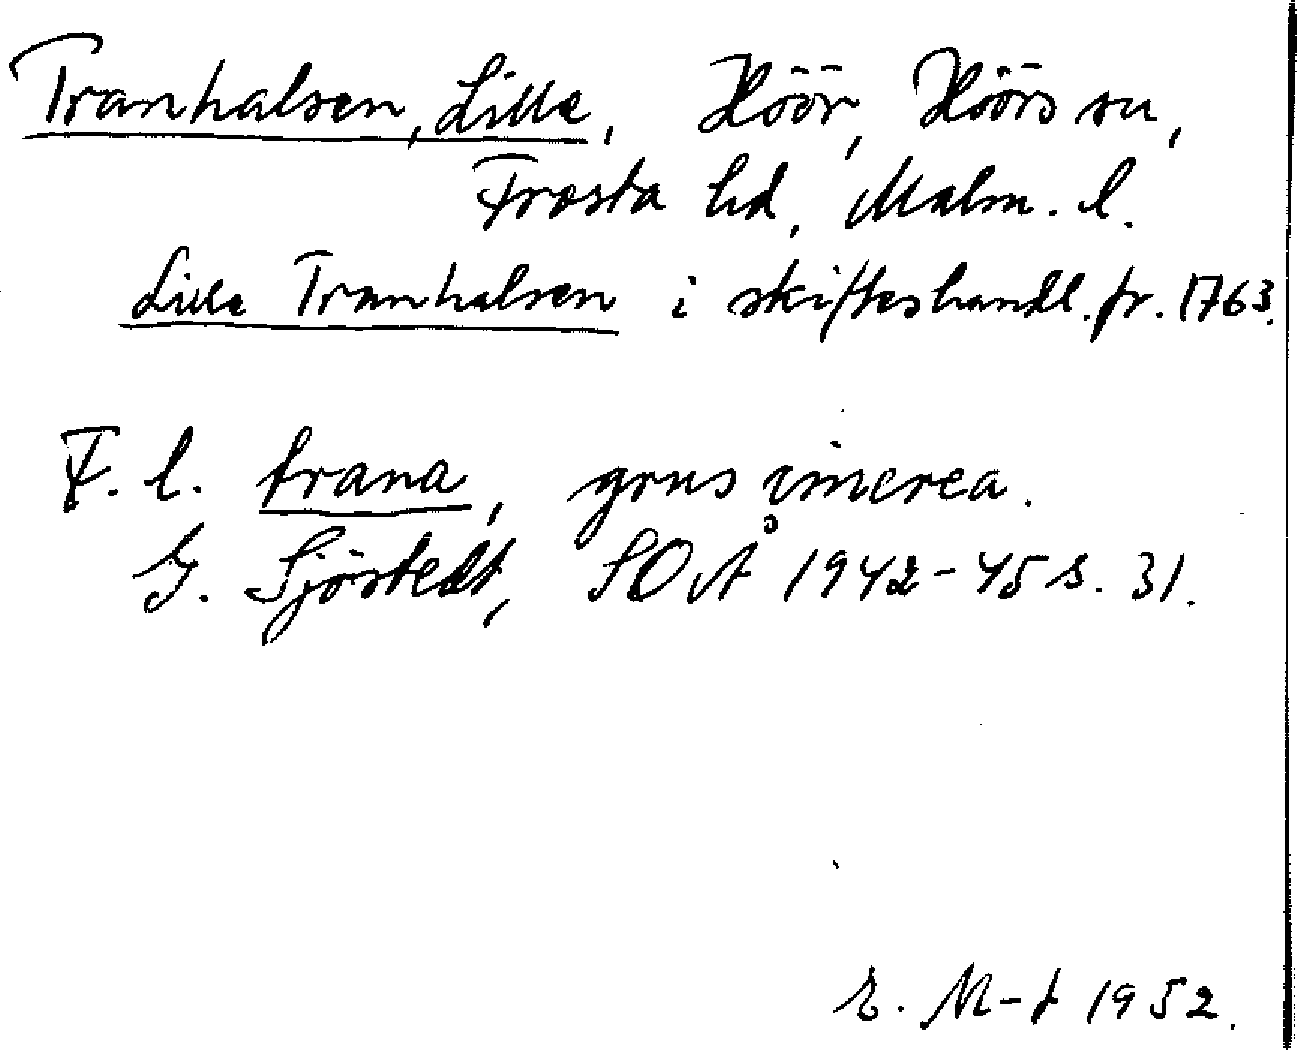 Tranhalsen, Lille, Höör, Höörs sn,
Frosta hd, Malm. l.
Lille Tranhalsen i skifteshandl. fr. 1763.
F. l. trana, grus cinerea.
G. Sjöstedt, SOÅ 1942-45 s. 31.
E. M-t 1952.